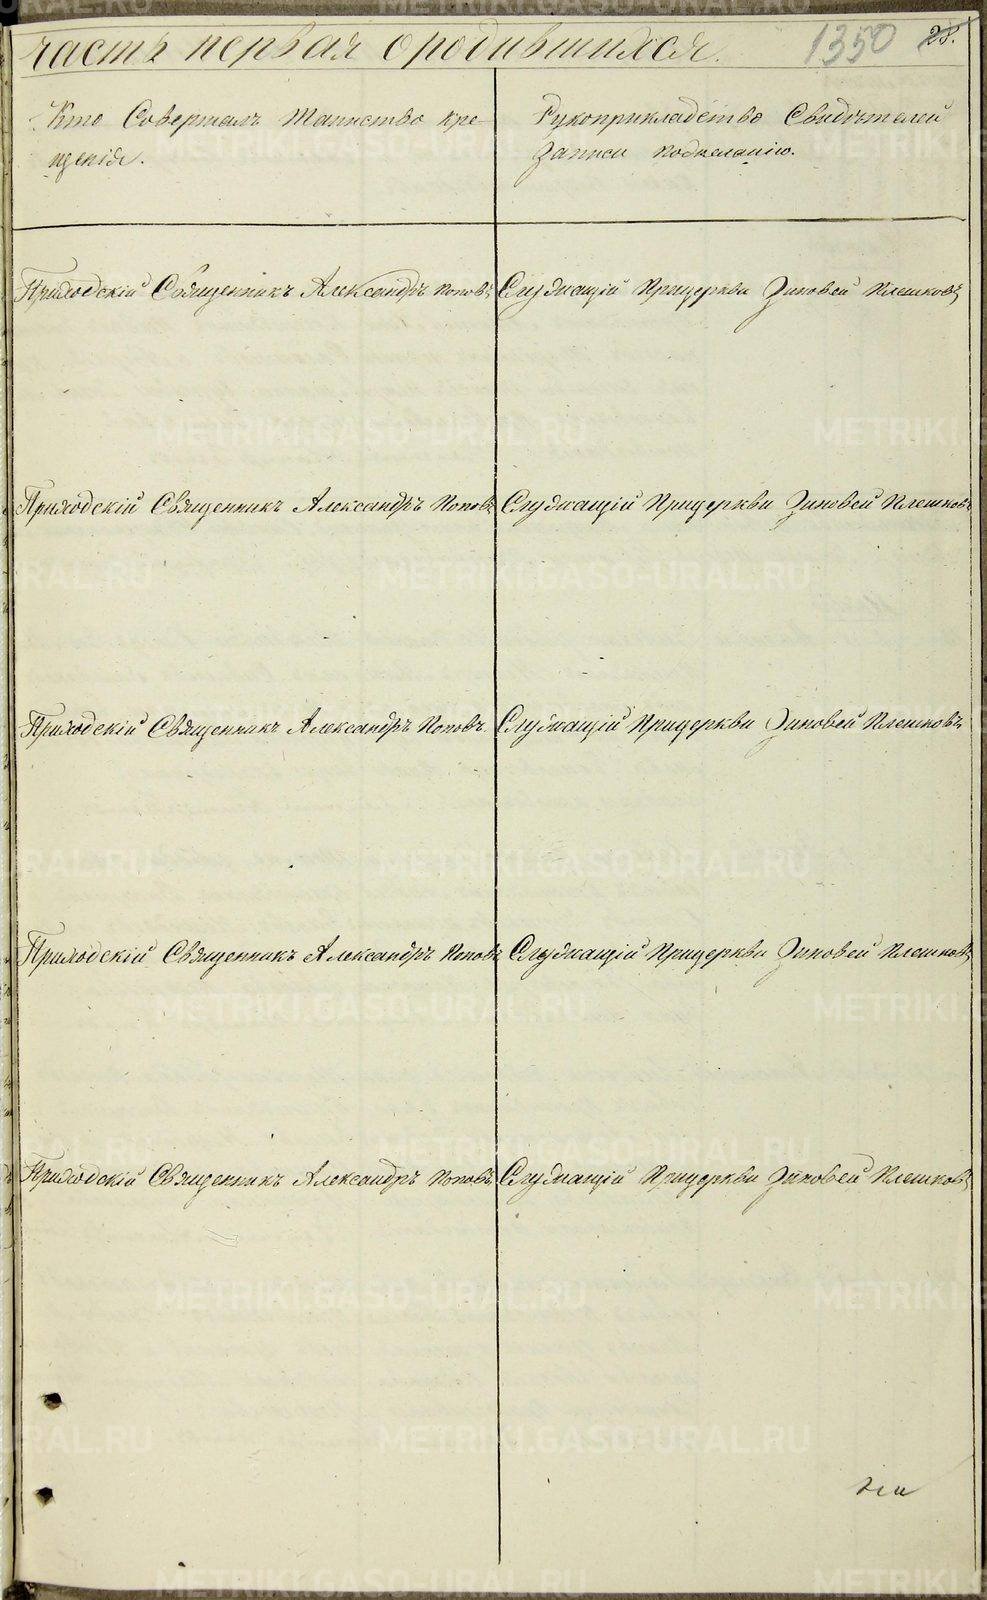 часть первая ородившихся.
1350 28.
Кто Совершалъ таинство кре-
щенія.
Рукоприкладство Свидѣтелей
записи пожеланію.
Приходскій Священникъ Александръ Поповъ
Служащій Прицеркви Зиновей Плешковъ
Приходскій Священникъ Александръ Поповъ
Служащій Прицеркви Зиновей Плешковъ
Приходскій Священникъ Александръ Поповъ
Служащій Прицеркви Зиновей Плешковъ
Приходскій Священникъ Александръ Поповъ
Служащій Прицеркви Зиновей Плешковъ
Приходскій Священникъ Александръ Поповъ
Служащій Прицеркви Зиновей Плешковъ
METRIKI.GASO-URAL.RU